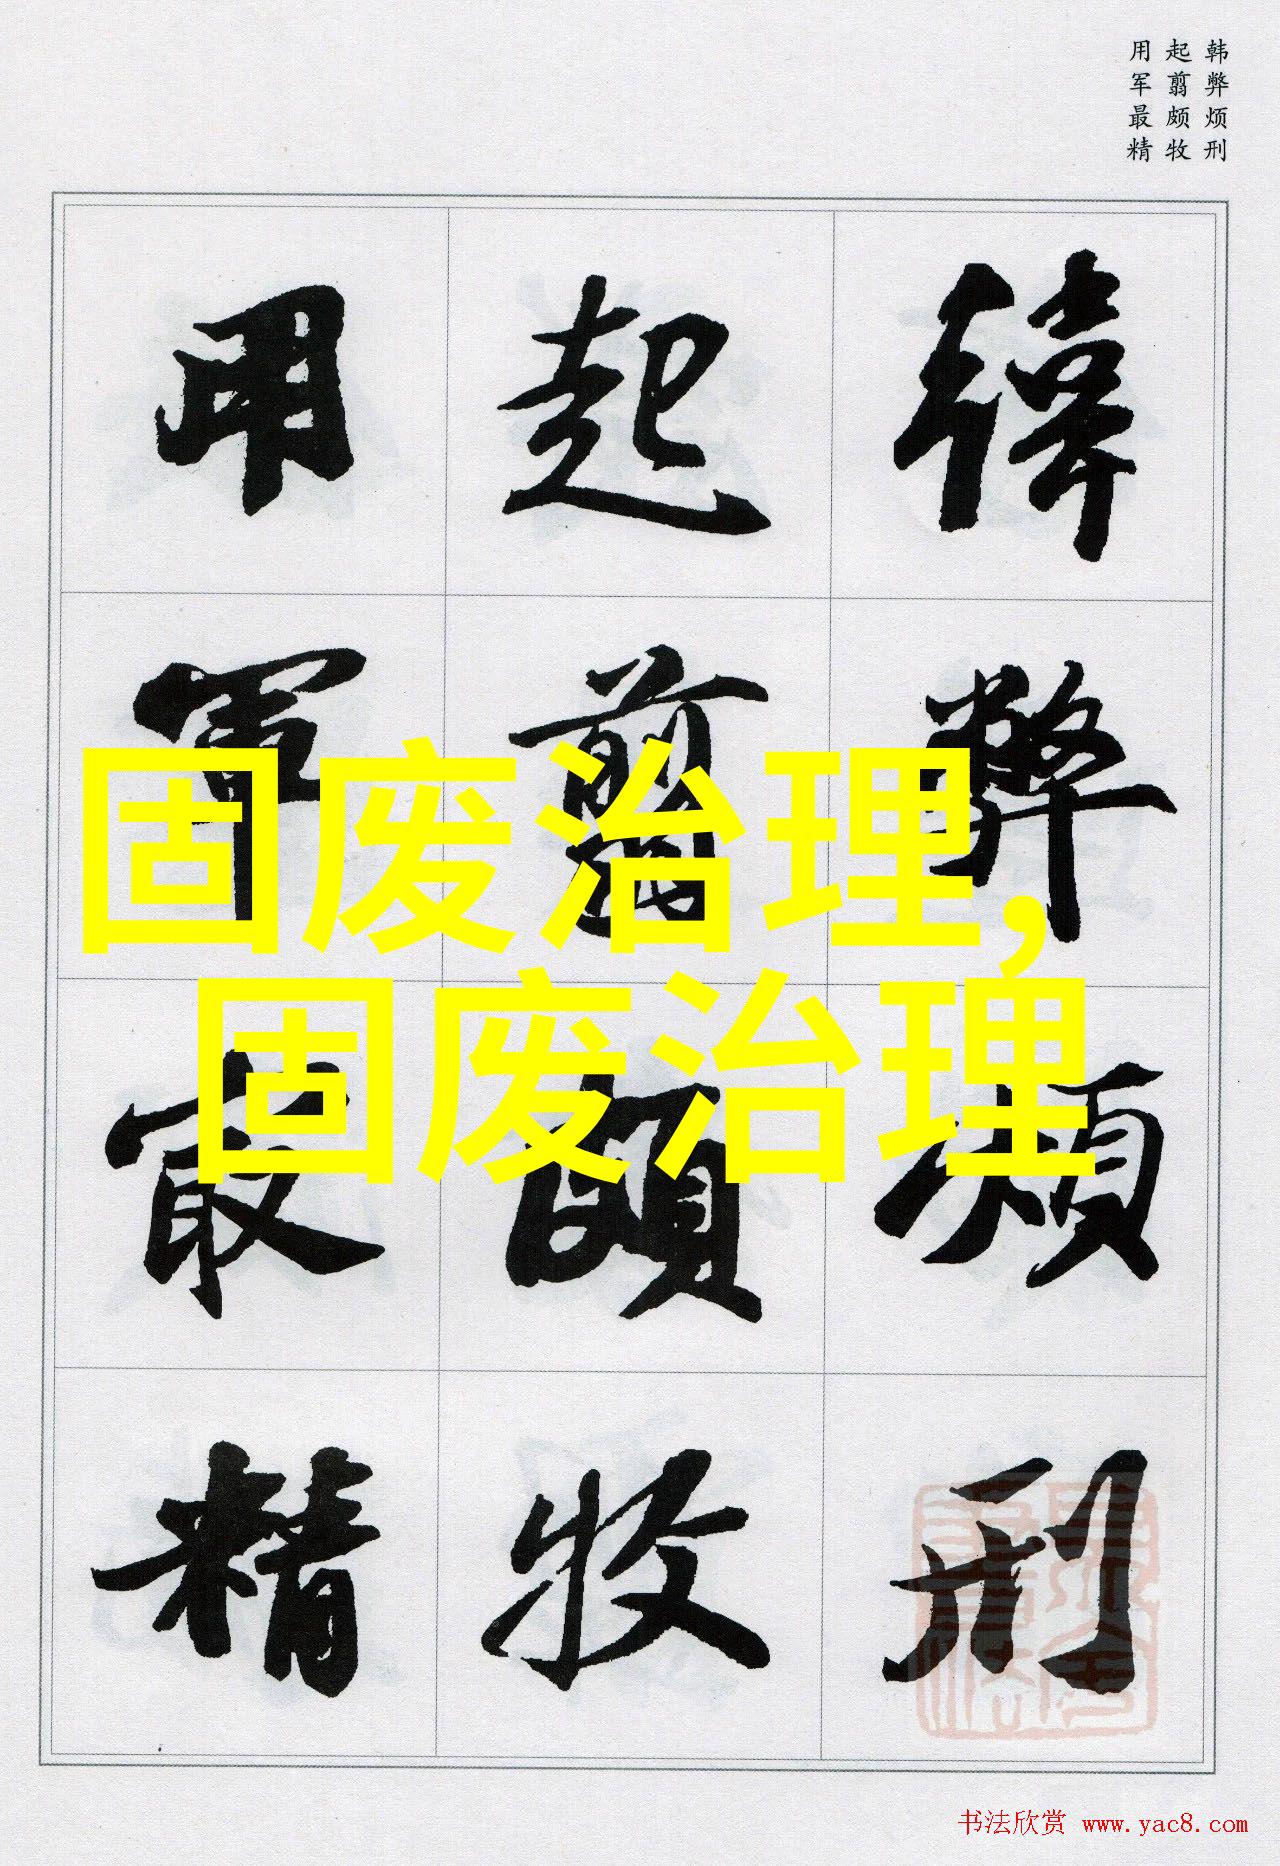 韩弊烦刑
起翦颇牧
用军最精
韓弊煩刑
起翦頗牧
用軍最精
固废治理，
固废治理
书法欣赏 www.yac8.com